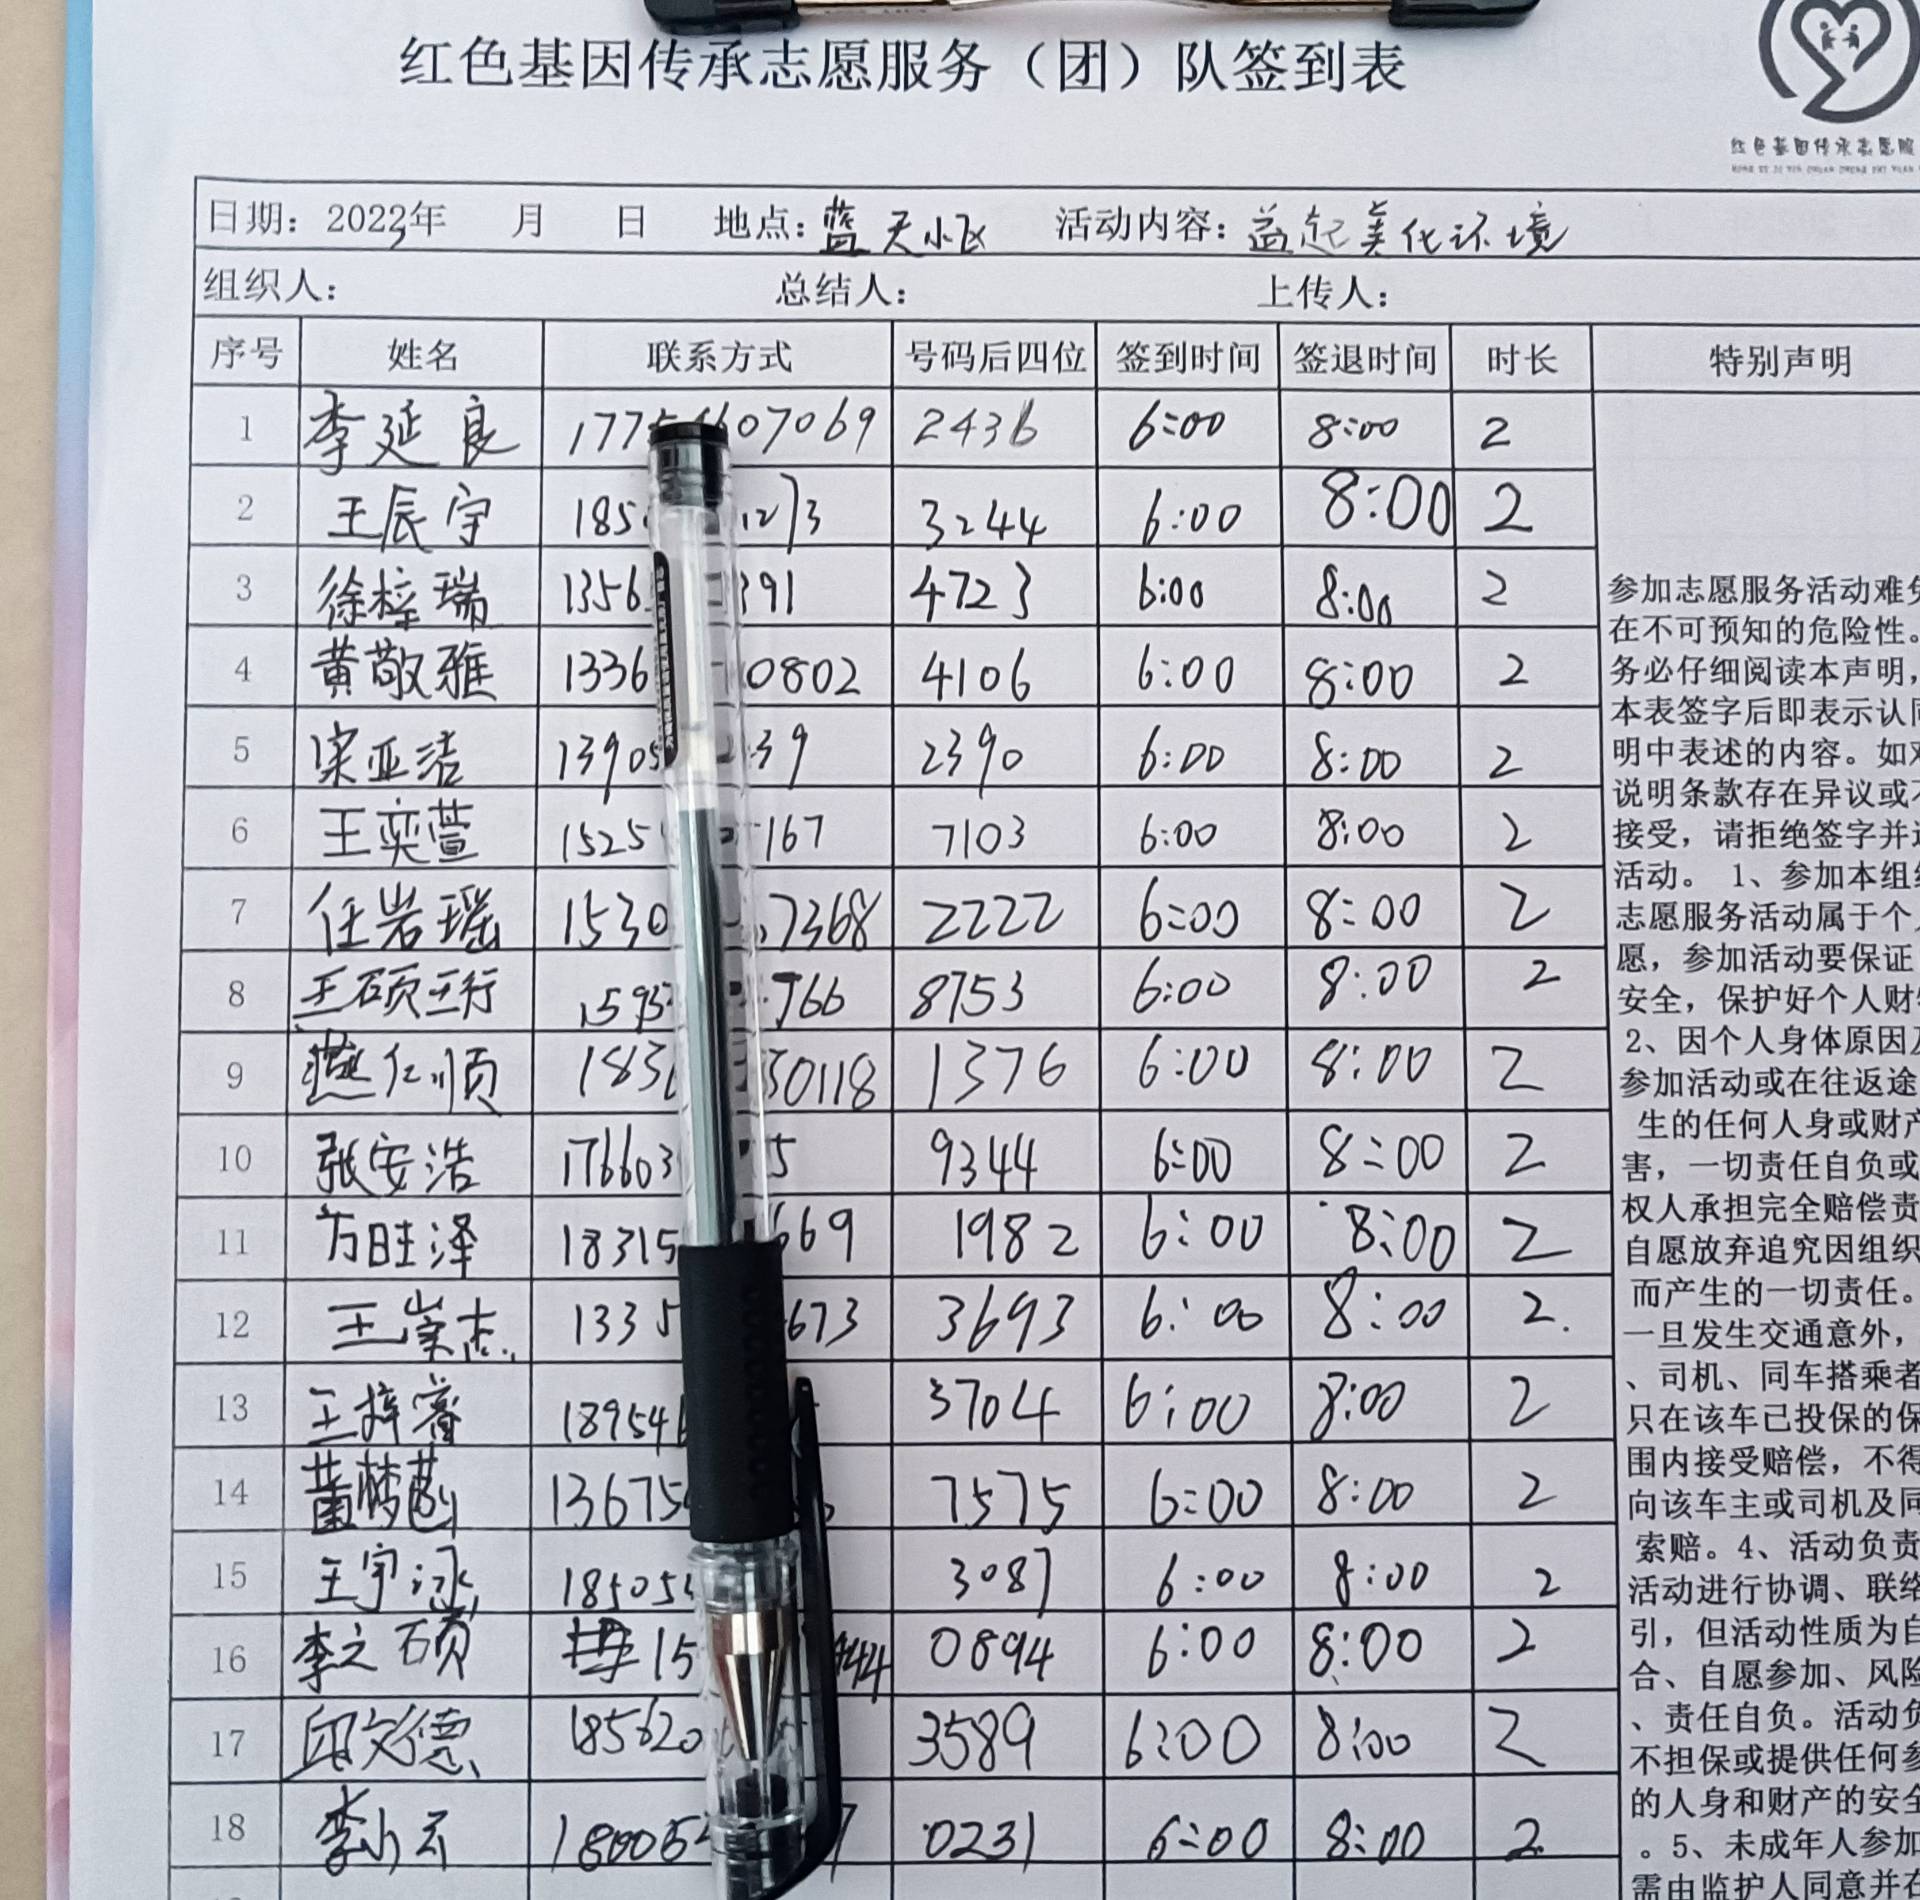 红色基因传承志愿服务（团）队签到表
红色基因传承志愿服
日期：2023年 月 日 地点：蓝天小区 活动内容：益起美化环境
组织人： 总结人： 上传人：
序号 姓名 联系方式 号码后四位 签到时间 签退时间 时长 特别声明
1 李延良 177 607069 2436 6:00 8:00 2
2 王辰宇 185 1273 3244 6:00 8:00 2
3 徐梓瑞 1356 391 4723 6:00 8:00 2
4 黄敬雅 1336 0802 4106 6:00 8:00 2
5 宋亚洁 13905 39 2390 6:00 8:00 2
6 王奕萱 1525 167 7103 6:00 8:00 2
7 任岩瑶 1530 7368 2222 6:00 8:00 2
8 王硕珩 1595 766 8753 6:00 8:00 2
9 燕仁顺 183 30118 1376 6:00 8:00 2
10 张安浩 176603 5 9344 6:00 8:00 2
11 方旺泽 18315 669 1982 6:00 8:00 2
12 王崇志 1335 673 3693 6:00 8:00 2.
13 王梓睿 18954 3704 6:00 8:00 2
14 13675 7575 6:00 8:00 2
15 王宇泳 18505 3087 6:00 8:00 2
16 李之硕 15 444 0894 6:00 8:00 2
17 邱文德 185620 3589 6:00 8:00 2
18 李小云 180052 7 0231 6:00 8:00 2
参加志愿服务活动难免
在不可预知的危险性。
务必仔细阅读本声明，
本表签字后即表示认同
明中表述的内容。如对
说明条款存在异议或不
接受，请拒绝签字并退
活动。 1、参加本组织
志愿服务活动属于个人
愿，参加活动要保证
安全，保护好个人财物
2、因个人身体原因及
参加活动或在往返途
生的任何人身或财产
害，一切责任自负或
权人承担完全赔偿责
自愿放弃追究因组织
而产生的一切责任。
一旦发生交通意外，
、司机、同车搭乘者
只在该车已投保的保
围内接受赔偿，不得
向该车主或司机及同
索赔。4、活动负责
活动进行协调、联络
引，但活动性质为自
合、自愿参加、风险
、责任自负。活动负
不担保或提供任何参
的人身和财产的安全
。5、未成年人参加
需由监护人同意并在